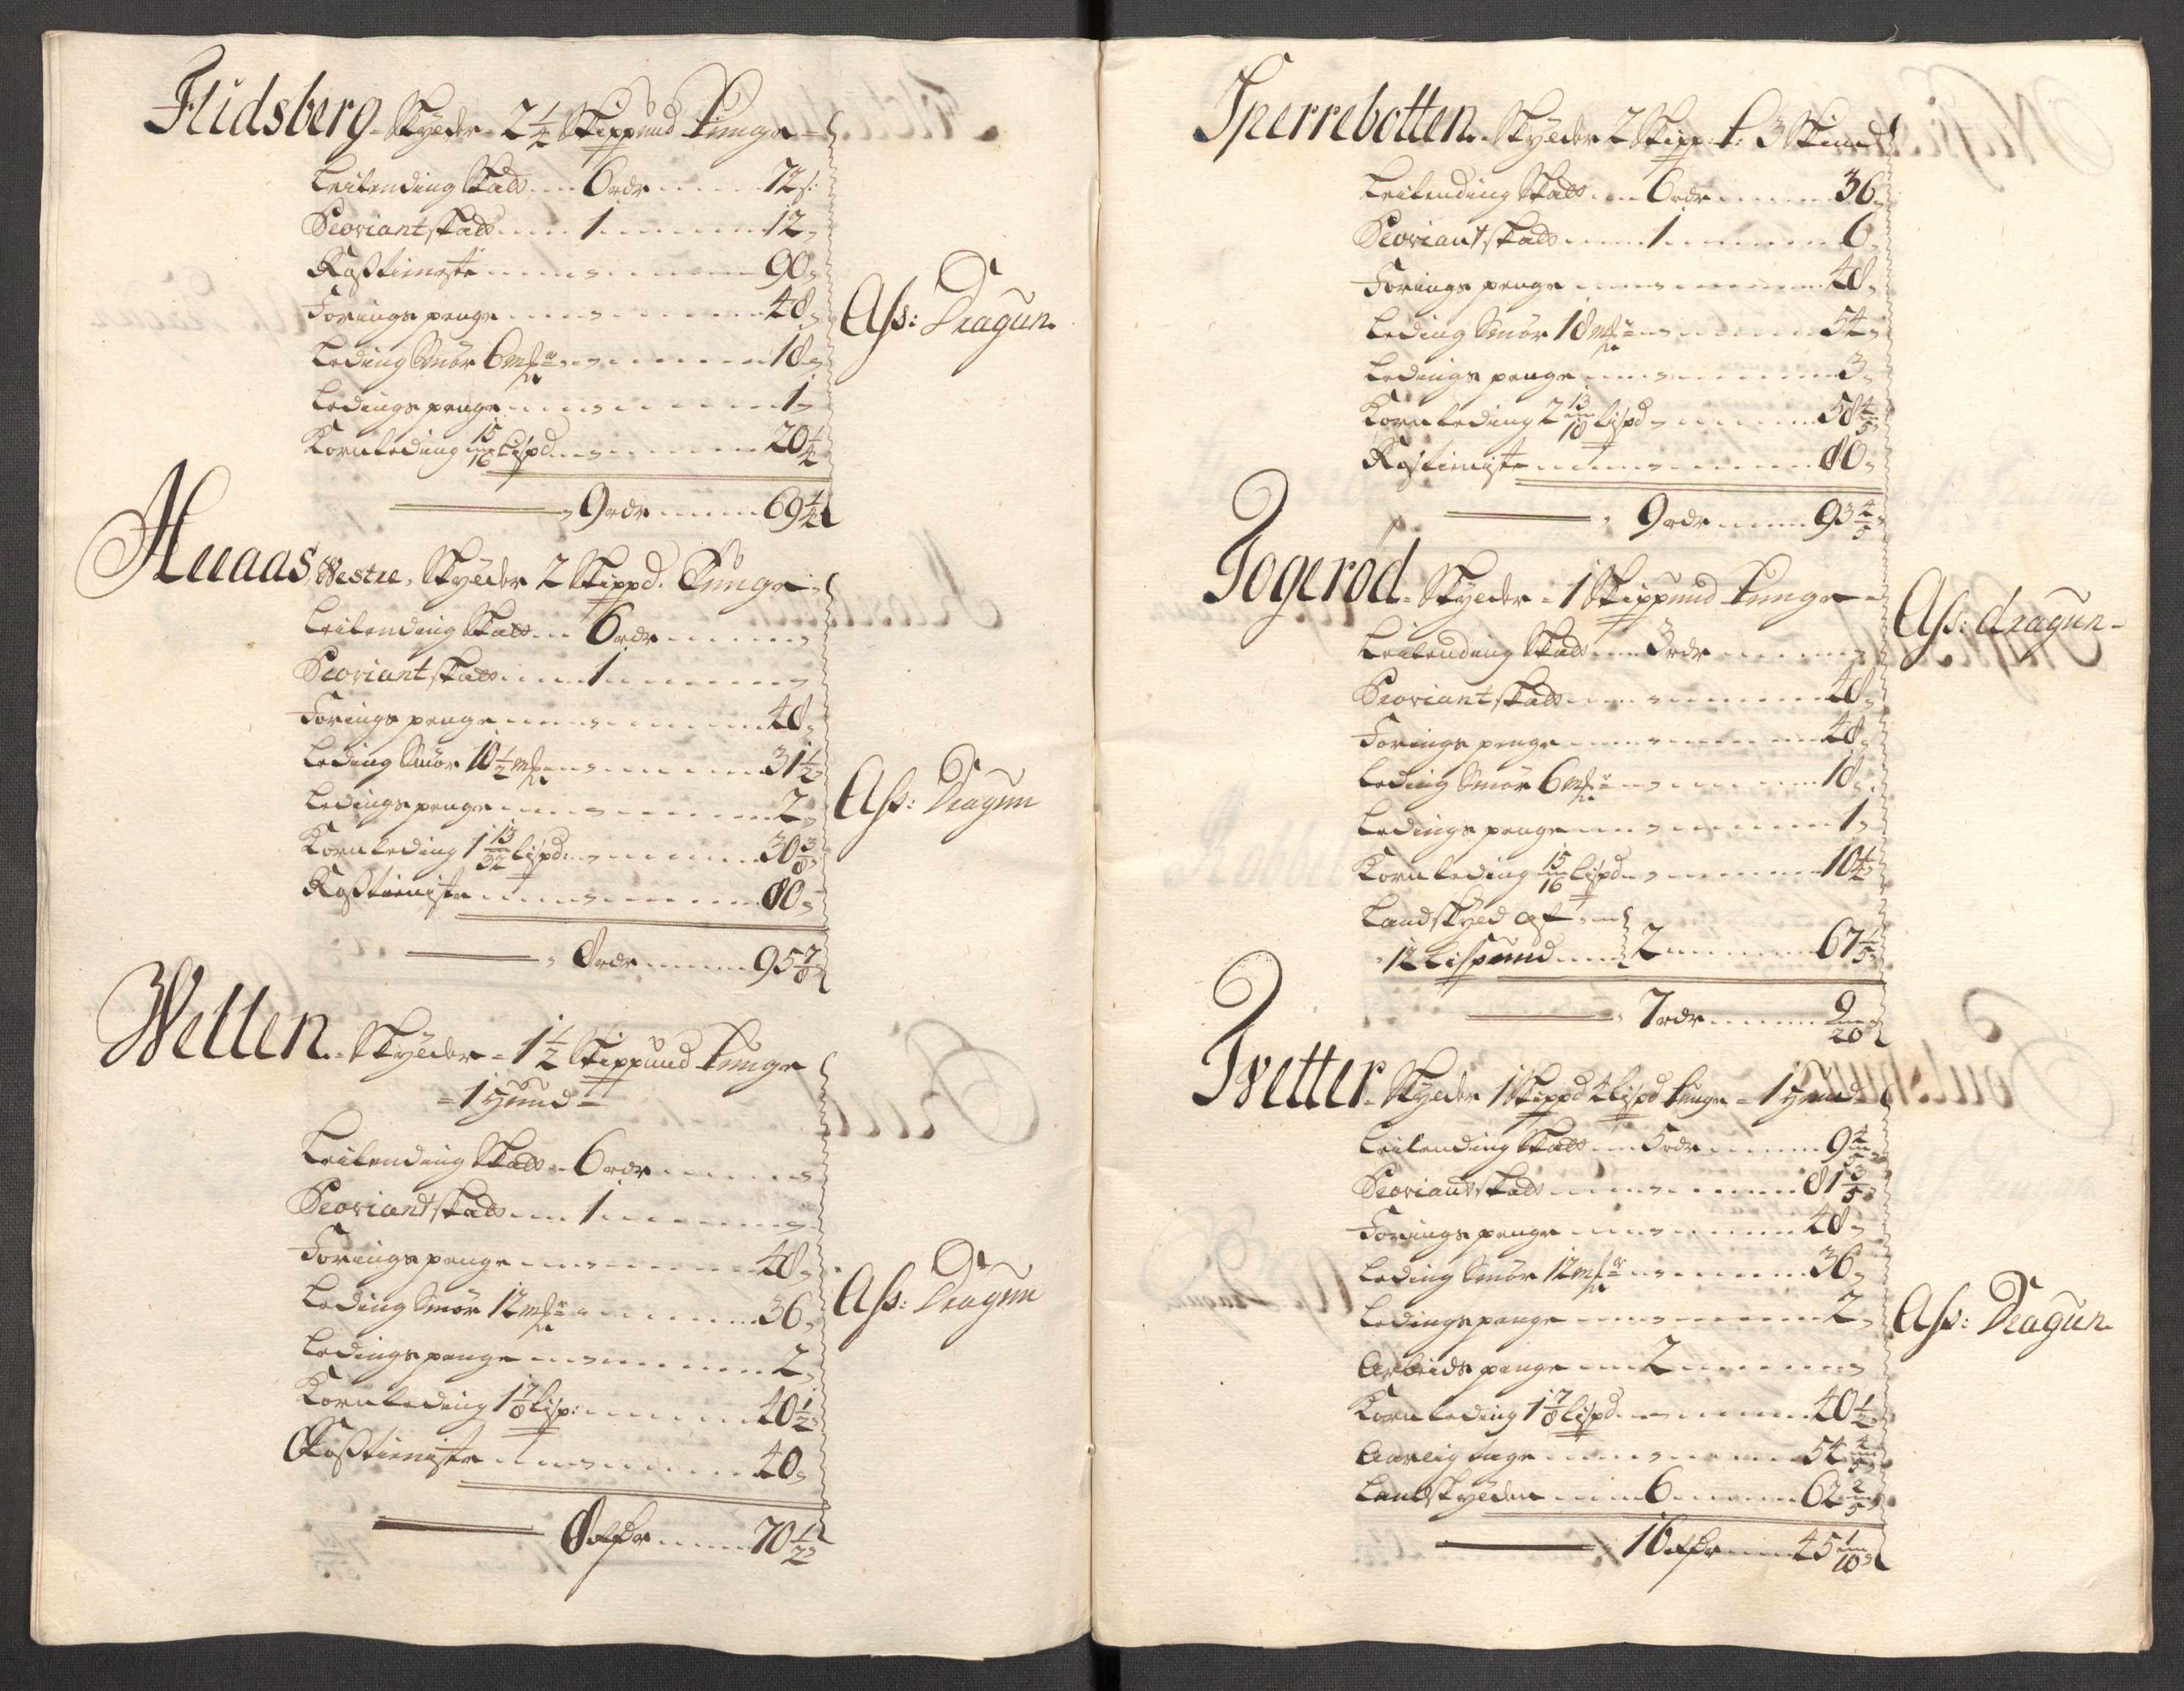 Flidsberg - Skylder - 2 1/4 Skippund Tunge -
Leilending Skatt 6 rdr 72 s:
Proviantskatt 1 12
Rosstieniste 90
Foringspenge 48
Leding Smør 6 mkr 18
Ledingspenge 1
Kornleding 15/16 Lispd 20 1/4
9 rdr 69 1/4
Ass: Dragun
Aluaas Vestre, Skylder 2 Skippd. Tunge
Leilending Skatt 6 rdr
Proviantskatt 1
Foringspenge 48
Leding Smør 10 1/2 mk 31 1/2
Ledingspenge 2
Kornleding 1 13/32 Lispd: 30 3/8
Rosstieniste 80
8 rdr 95 7/8
Ass: Dragun
Wetten - Skylder - 1 1/2 Skippund Tunge
- 1 Huud -
Leilending Skatt - 6 rdr
Proviantskatt 1
Foringspenge 48
Leding Smør 12 mkr 36
Ledingspenge 2
Kornleding 1 7/8 Lisp: 40 1/2
Rosstieniste 40
8 rdr 70 1/2
Ass: Dragun
Sperrebotten - Skylder 2 Skipp: t: 3 Skind
Leilending Skatt 6 rdr 36
Proviantskatt 1 6
Foringspenge 48
Leding Smør 18 mkr 54
Ledingspenge 3
Kornleding 2 13/16 Lispd 58 4/5
Rostieniste 80
9 rdr 93 4/5
Togerød - Skylder - 1 Skippund Tunge -
Leilending Skatt 3 rdr
Proviantskatt 48
Foringspenge 48
Leding Smør 6 mkr 18
Ledingspenge 1
Kornleding 15/16 Lispd 10 1/4
Landskyld af
12 Lispund 2 67 1/5
7 rdr 9/20
Ass: dragun -
Tvetter - Skylder 1 Skippd 4 Lispd Tunge - 1 Huud
Leilending Skatt 5 rdr 9 4/5
Proviantskatt 81 3/5
Foringspenge 48
Leding Smør 12 mkr 36
Ledingspenge 2
Arbeidspenge 2
Kornleding 1 7/8 Lispd 40 1/2
Aarlig tage 54 4/5
Landskylden 6 62 2/5
16 rdr 45 1/10
Ass: Dragun